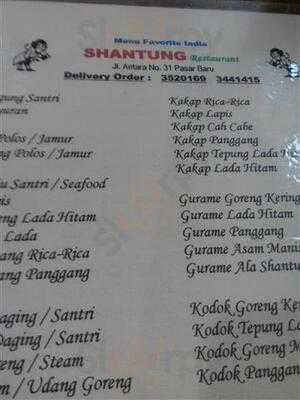 Menu Favorite India
SHANTUNG Restaurant
Jl. Antara No. 31 Pasar Baru
Delivery Order : 3520169 3441415
Santri
Polos / Jamur
Polos / Jamur
Santri / Seafood
Lada Hitam
Lada
Rica-Rica
Panggang
/ Santri
/ Santri
/ Steam
/ Udang Goreng
Kakap Rica-Rica
Kakap Lapis
Kakap Cah Cabe
Kakap Panggang
Kakap Tepung Lada
Kakap Lada Hitam
Gurame Goreng Kering
Gurame Lada Hitam
Gurame Panggang
Gurame Asam Manis
Gurame Ala
Kodok Goreng
Kodok Tepung
Kodok Goreng
Kodok